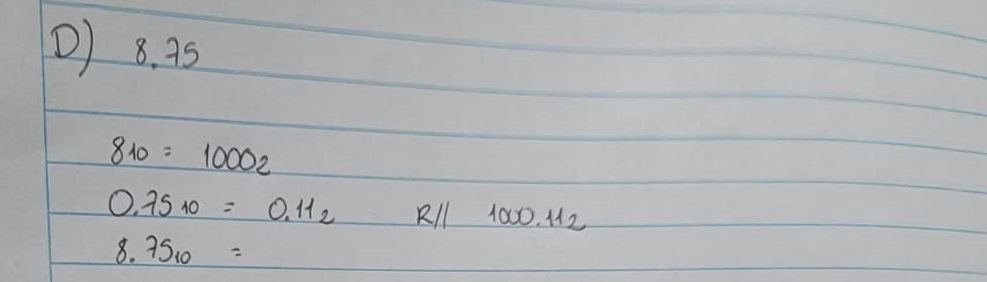 D) 8.75
8₁₀ = 1000₂
0.75₁₀ = 0.11₂ R// 1000.11₂
8.75₁₀ =